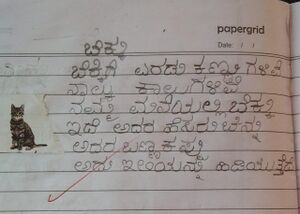 papergrid
Date: / /
ಬೆಕ್ಕು
ಬೆಕ್ಕಿಗೆ ಎರಡು ಕಣ್ಣುಗಳಿವೆ
ನಾಲ್ಕು ಕಾಲುಗಳಿವೆ
ನಮ್ಮ ಮನೆಯಲ್ಲಿ ಬೆಕ್ಕು
ಇದೆ ಅದರ ಹೆಸರು
ಅದರ ಬಣ್ಣ ಕಪ್ಪು
ಅದು ಇಲಿಯನ್ನು ಹಿಡಿಯುತ್ತದೆ